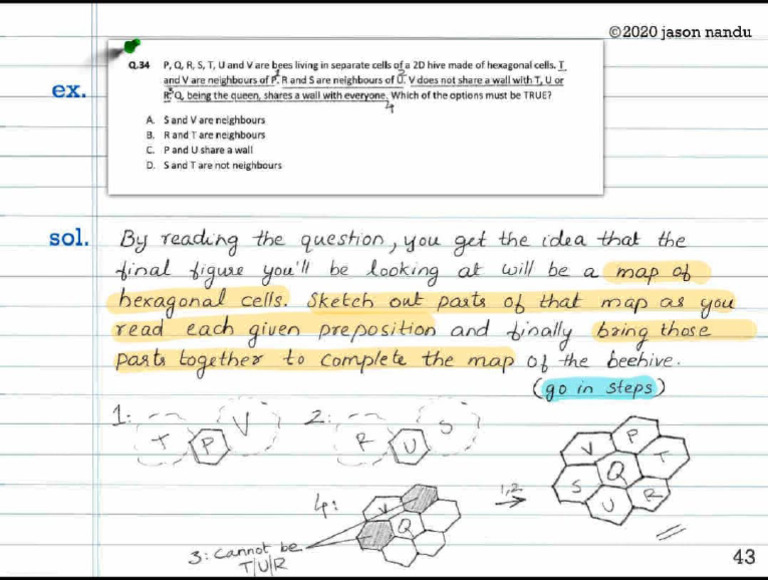 ©2020 jason nandu
ex.
Q.34 P, Q, R, S, T, U and V are bees living in separate cells of a 2D hive made of hexagonal cells. T
and V are neighbours of P. R and S are neighbours of U. V does not share a wall with T, U or
R. Q, being the queen, shares a wall with everyone. Which of the options must be TRUE?
1 2 3 4
A. S and V are neighbours
B. R and T are neighbours
C. P and U share a wall
D. S and T are not neighbours
sol.
By reading the question, you get the idea that the
final figure you'll be looking at will be a map of
hexagonal cells. Sketch out parts of that map as you
read each given preposition and finally bring those
parts together to complete the map of the beehive.
(go in steps)
1: T P V 2: R U S
4: V Q
3: Cannot be
T/U/R
1,2
V P T
S Q
U R
43